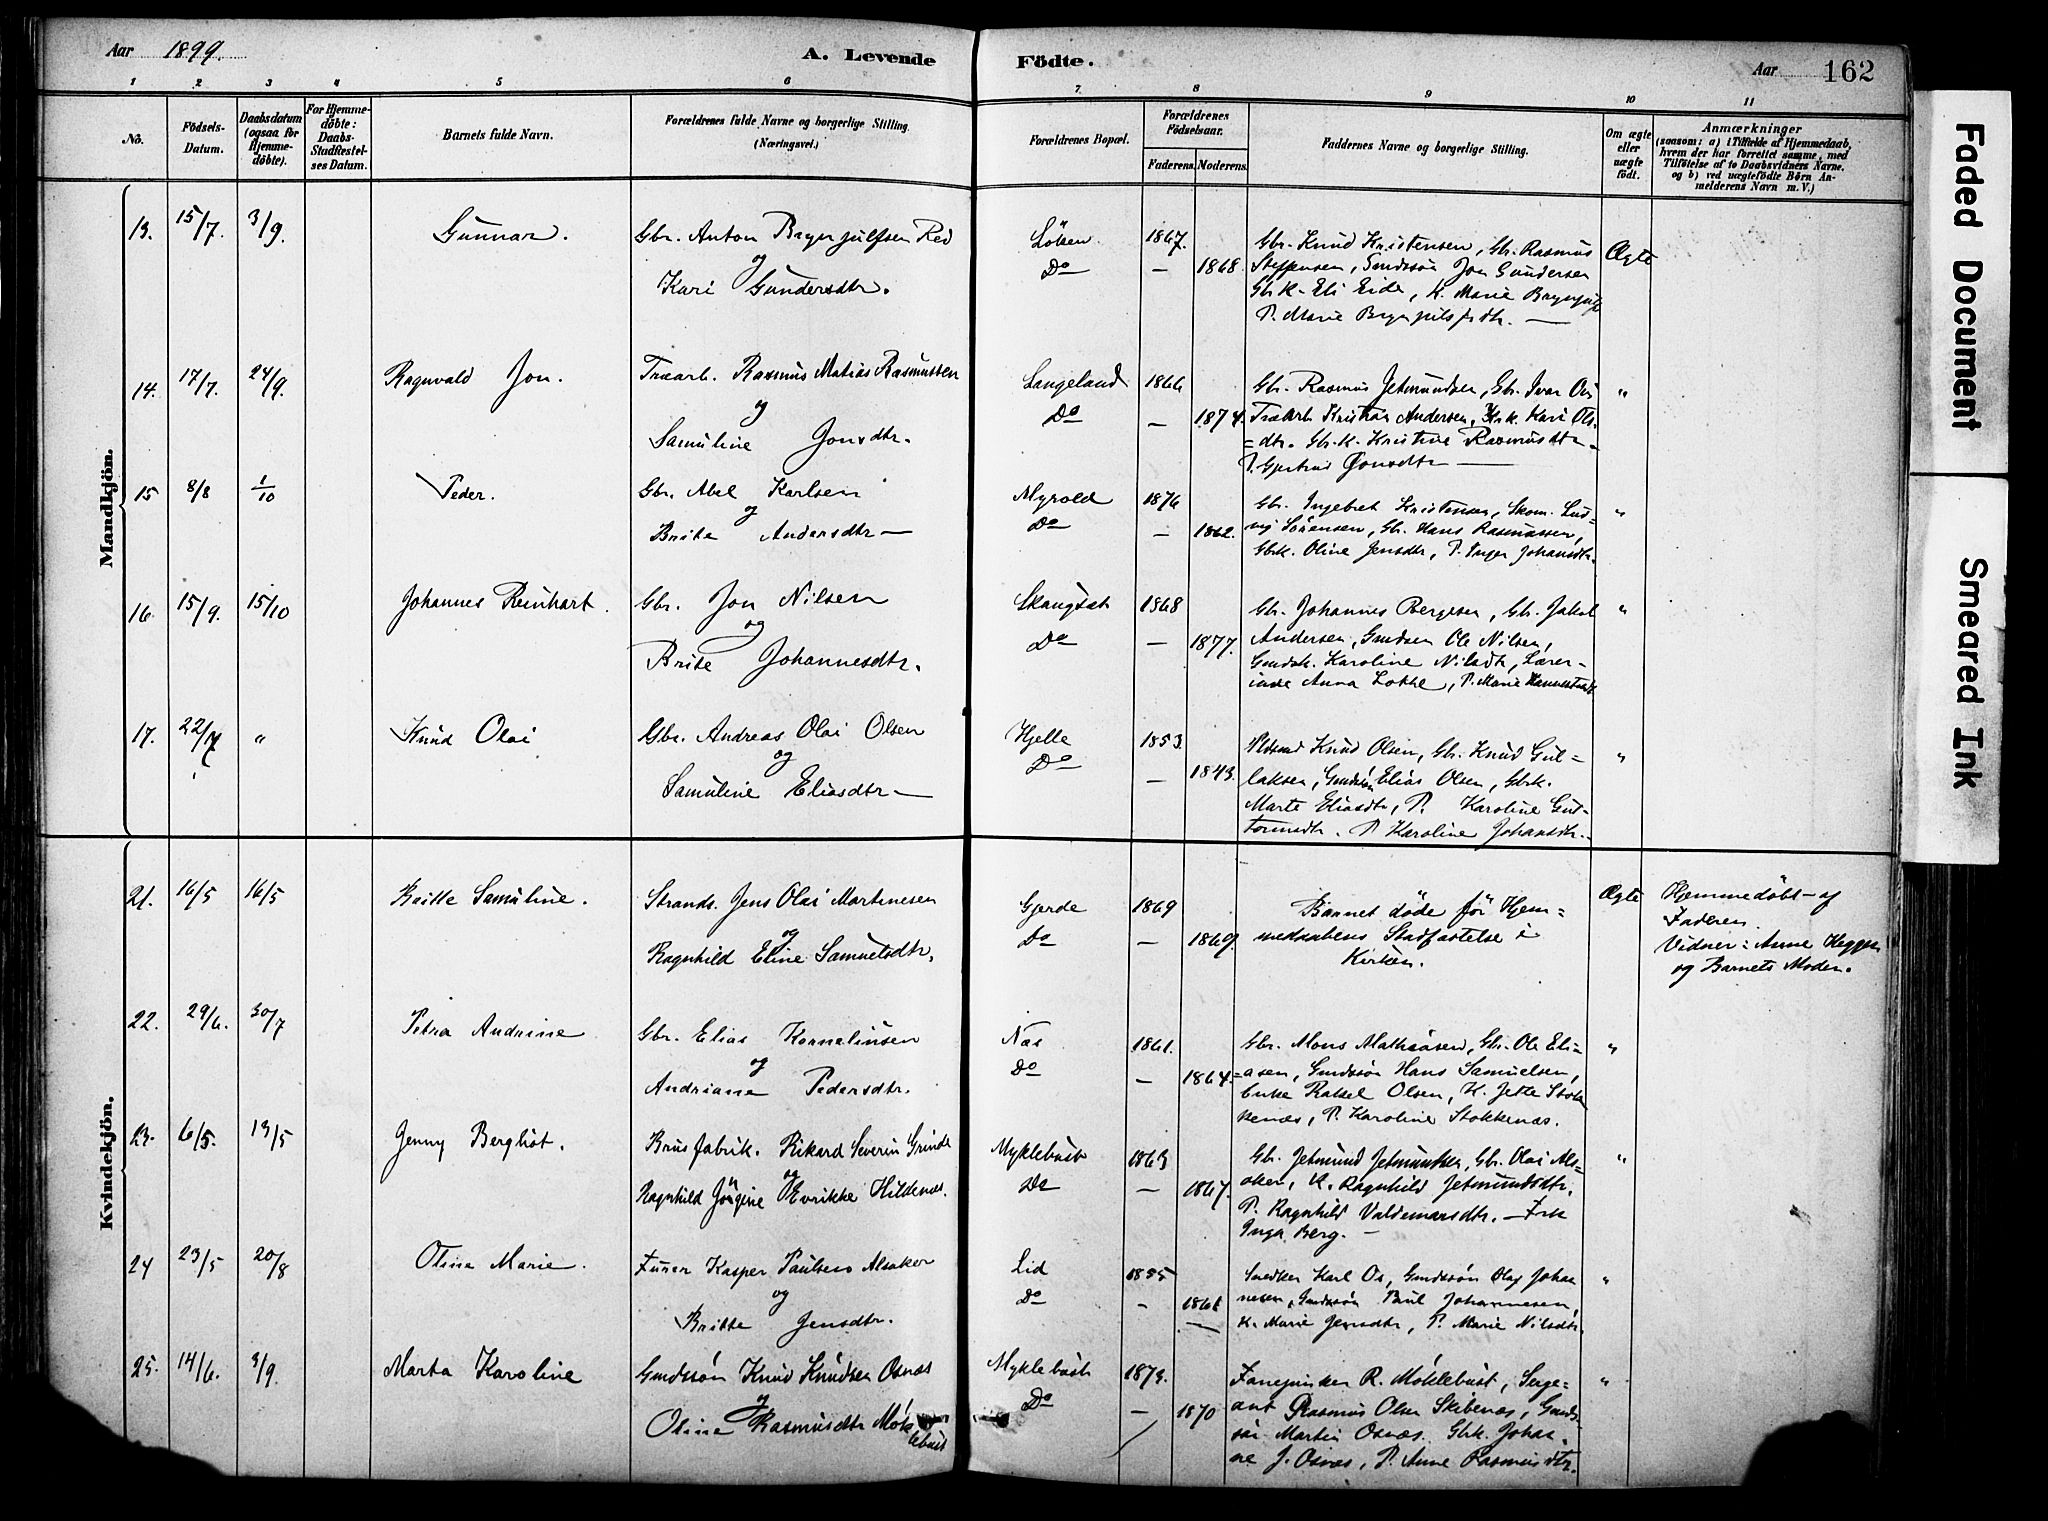 Aar 1899.
A. Levende Födte.
Aar 162
1 2 3 4 5 6 7 8 9 10 11
No.
Födsels-Datum.
Daabsdatum (ogsaa for Hjemmedöbte).
For Hjemmedöbte: Daabs-Stadfæstelses Datum.
Barnets fulde Navn.
Forældrenes fulde Navne og borgerlige Stilling. (Næringsvei.)
Forældrenes Bopæl.
Forældrenes Födselsaar.
Faderens. Moderens.
Faddernes Navne og borgerlige Stilling.
Om ægte eller uægte födt.
Anmærkninger
(saasom: a) i Tilfælde af Hjemmedaab, hvem der har forrettet samme, med Tilföielse af to Daabsvidners Navne, og b) ved uægtefödte Börn Anmelderens Navn m. V.)
Mandkjön.
13. 15/7. 3/9. Gunnar. Gbr. Anton Brynjulfsen Red
og
Kari Gundersdtr.
Løken. Do
1867. — 1868.
Gbr. Knud Kristensen, Gbr. Rasmus
Steffensen, Gmdssön Jon Gundersen
Gbrk. Eli Eide, K. Marie Brynjulfs
P. Marie Brynjulfsdtr. —
Ægte
14. 17/7. 24/9. Ragnvald Jon. Træarb. Rasmus Matias Rasmussen
og
Samuline Jonsdtr.
Langeland Do
1866 — 1874.
Gbr. Rasmus Jetmundsen, Gbr. Ivar Os
Træarb. Kristian Andersen, Gbrk. Kari Ols-
=dtr. Gbr.K. Kristine Rasmusdtr.
P. Gjertrud Jonsdtr —
"
15 8/8 1/10 Peder. Gbr. Abel Karlsen
og
Brite Andersdtr —
Myrold Do
1876 — 1862.
Gbr. Ingebret Kristensen, Skom. Lud-
vig Sörensen, Gbr. Hans Rasmussen,
Gbrk. Oline Jensdtr, P. Inger Johansdtr.
"
16. 15/9. 15/10 Johannes Reinhart. Gbr. Jon Nilsen
og
Brite Johannesdtr.
Skaugset Do
1868 — 1877.
Gbr. Johannes Bergesen, Gbr. Jakob
Andersen, Gmdsen Ole Nilsen,
Gmdsk. Karoline Nilsdtr, Lærer-
inde Anna Lothe, P. Marie
"
17. 22/7 " Knud Olai Gbr. Andreas Olai Olsen
og
Samuline Eliasdtr —
Hjelle Do
1853. — 1843.
Knud Olsen, Gbr. Knud Gul=
laksen, Gmdssön Elias Olsen, Gbrk.
Marte Eliasdtr, P. Karoline Gut-
tormsdtr. P Karoline Johansdtr. -
"
Kvindekjön.
21. 16/5 16/5 Britte Samuline. Strands. Jens Olai Martinesen
og
Ragnhild Eline Samuelsdtr.
Gjerde Do
1869 — 1869.
Barnet døde før Hjem=
medaabens Stadfæstelse i
Kirken.
Ægte
Hjemmedöbt af
Faderen.
Vidner: Anne Heggen
og Barnets Moder.
22. 29/6. 30/7 Petra Andrine Gbr. Elias Kornelinsen
og
Andriane Pedersdtr.
Næs Do
1861. — 1864.
Gbr. Mons Mathiasen, Gbr. Ole Eli=
=asen, Gmdssön Hans Samuelsen,
Enke Rakel Olsen, K. Jette Stok
kenæs, P. Karoline Stokkenæs.
"
23. 6/5. 13/5 Jenny Bergliot. Brusfabrik. Rikard Severin Grinde
og
Ragnhild Jörgine Enrikke Hildenes.
Myklebust Do
1863 — 1867.
Gbr. Jetmund Jetmundsen, Gbr. Olai Als-
aker, K. Ragnhild Jetmundsdtr.
P. Ragnhild Valdemarsdtr. — Frk
Inga Berg. —
"
24 23/5 20/8 Otine Marie. Furer Kasper Paulsen Alsaker
og
Britte Jensdtr.
Lid Do
1855 - 1861
Snedker Karl Os, Gmdssön Olaf Johan
nesen, Gmdssön Paul Johannesen,
K. Marie Jensdtr, P. Marie Nilsdtr.
"
25. 14/6. 3/9. Marta Karoline Gmdssön Knud Knudsen Osnæs
og
Oline Rasmusdtr Mök
lebust
Myklebust Do
1873. — 1870
Fanejunker R. Möklebust, Serge=
ant Rasmus Olsen Skibenæs, Gmds-
sön Martin Osnæs. Gbk. Johan
ne J. Osnæs, P. Anne Rasmusdtr.
"
Faded Document
Smeared Ink